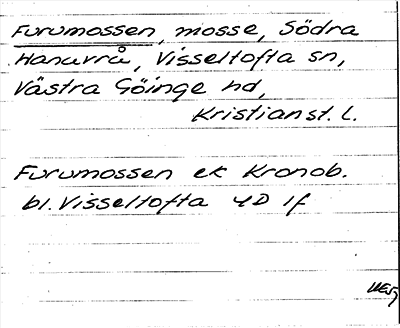 Furumossen, mosse, Södra
Hanavrå, Visseltofta sn,
Västra Göinge hd,
Kristianst. l.
Furumossen ek Kronob.
bl. Visseltofta 4D 1f